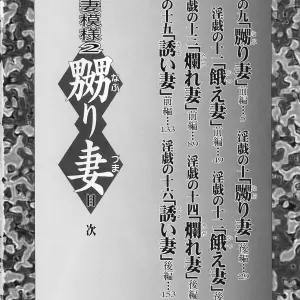 妻模様2
嬲り妻
なぶ
つま
目次
の九「嬲り妻」前編…5
淫戯の十「嬲り妻」後編…29
淫戯の十一「餓え妻」前編…49
淫戯の十二「餓え妻」後編…
淫戯の十三「爛れ妻」前編…89
淫戯の十四「爛れ妻」後編…
の十五「誘い妻」前編…133
淫戯の十六「誘い妻」後編…153